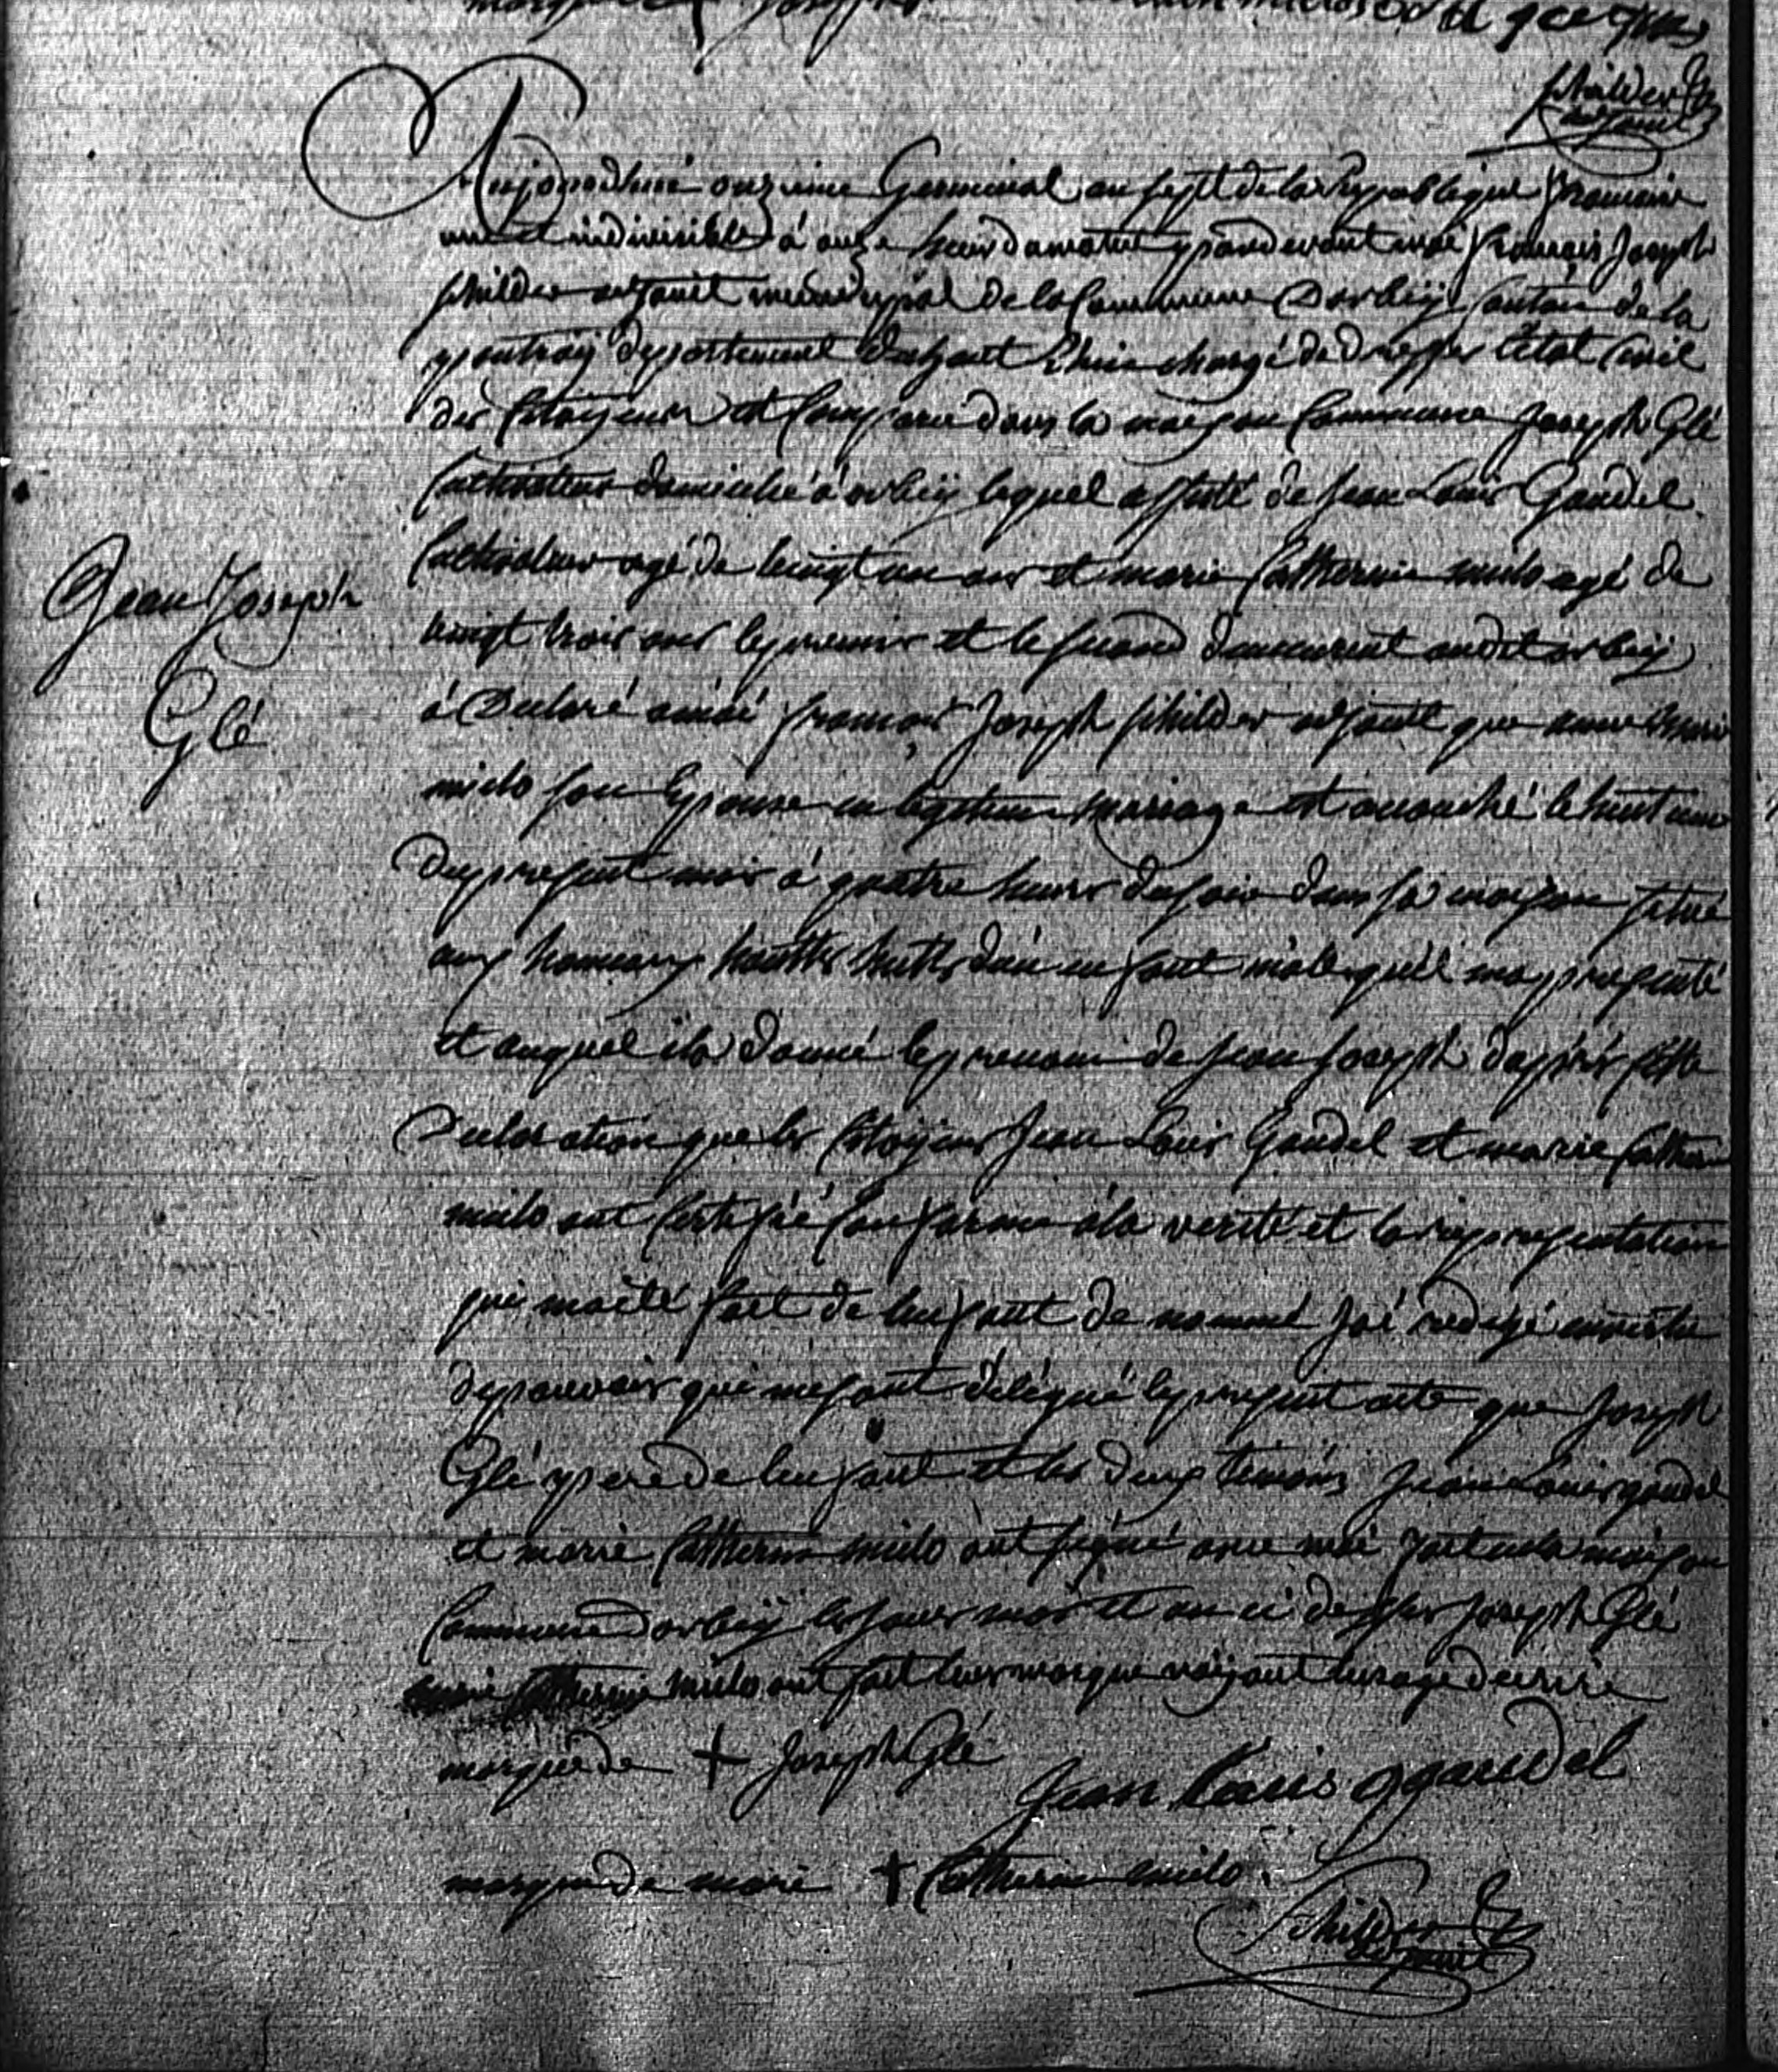 Schilder
adjoint
Aujourdhuié onzieme Germinal an sept de la Republique francoise
une et indivisible à onze heur du matin pardevant moi françois Joseph
Schilder adjoint municipal de la Commune Dorbeÿ Canton de la
poutroÿ departement du haut Rhin chargé de dresser l'état Civil
des Citoyens est Comparu dans la maison Commune Joseph Glé
Cultivateur domicilié à orbeÿ lequel assisté de Jean Louis Gaudel
Cultivateur agé de vingt un ans et marie Catherine miclo agé de
vingt trois ans le premier et le second demeurent audit orbeÿ
à Declaré à moi françois Joseph Schilder adjoint que anne marie
miclo son Epouse en legitime mariage est accouché le huit
du present mois à quatre heures du soir dans sa maison situé
aux hameaux hautts huttes d'un enfant mâle qu'il ma presenté
et auquel il a donné le prenom de Jean Joseph d'après cette
Declaration que les Citoyens Jean Louis Gaudel et marie Catherin
miclo ont Certifié Conforme à la verité et la representation
qui m'a été fait de l'enfant de nommé J'ai redigé
de pouvoir qui me sont délégué le present acte que Joseph
Glé pere de l'enfant et les deux temoins Jean Louis gaudel
et marie Catherine miclo ont signé avec moi fait en la maison
Commune Dorbeÿ les jour mois et an ci dessus Joseph Glé
marie Catherine miclo ont fait leur marque n'aÿant l'usage d'ecrire
Jean Joseph
Glé
marque de + Joseph Glé
Jean Louis ggaudel
marque de marie + Catherine miclo
Schilder
adjoint